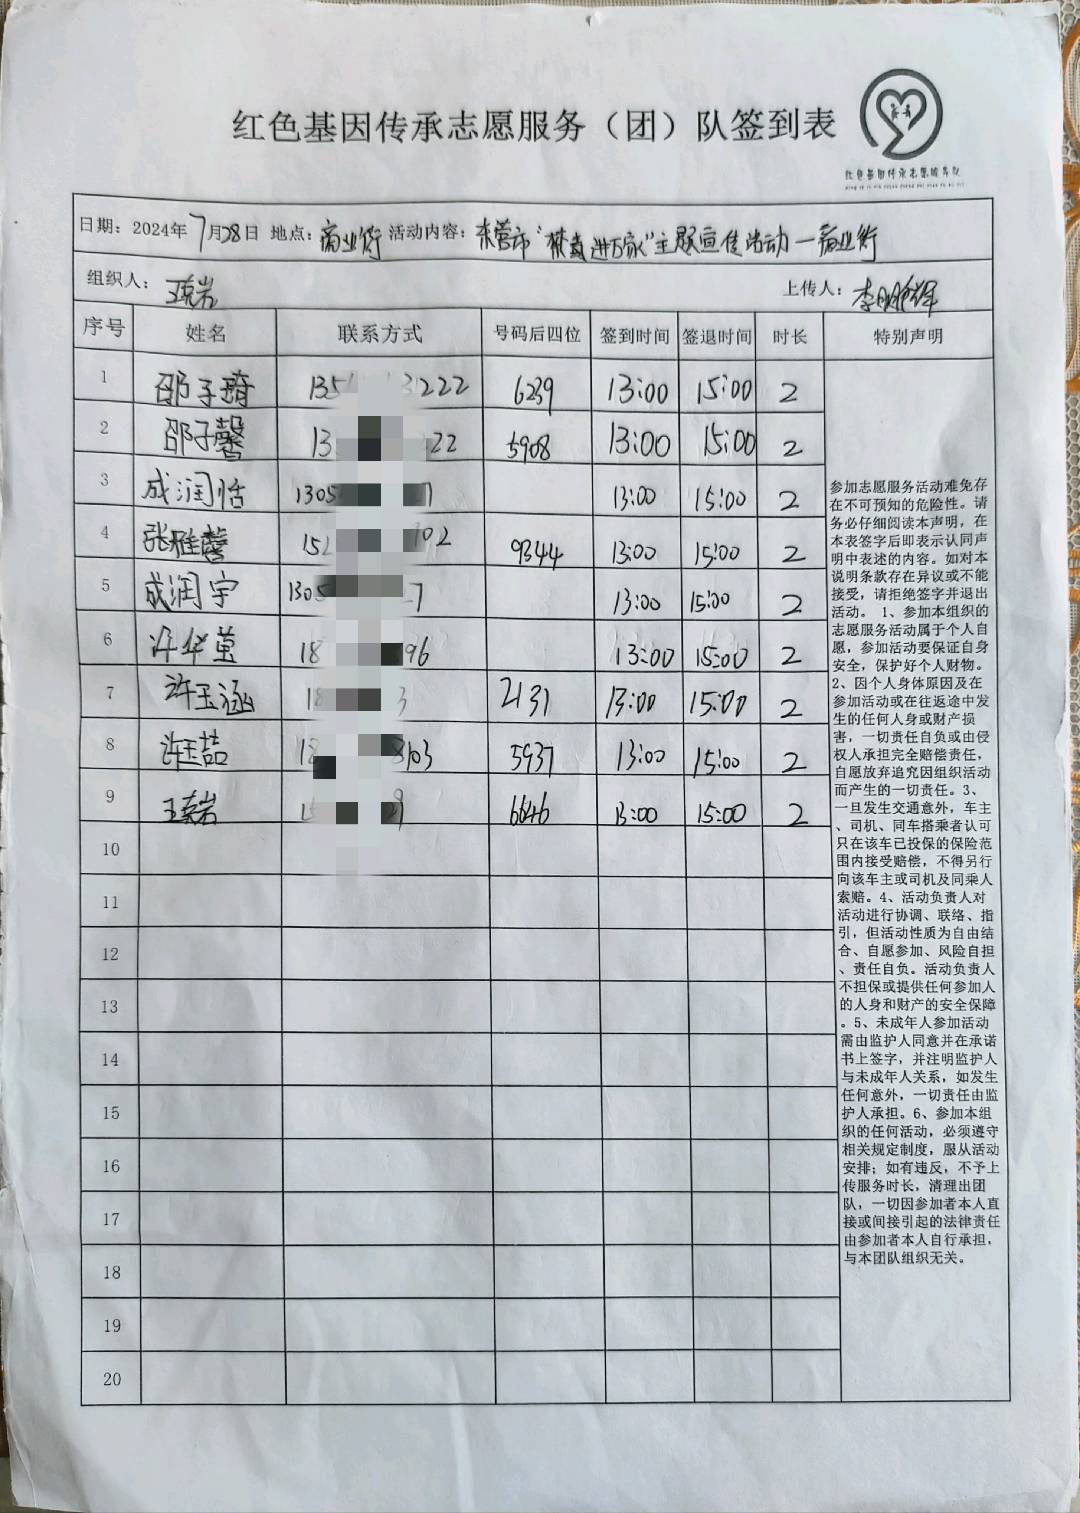 红色基因传承志愿服务（团）队签到表
红色基因传承志愿服务队
日期：2024年7月28日 地点：商业街 活动内容：东营市“禁毒进万家”主题宣传活动—商业街
组织人：王克岩 上传人：
序号 姓名 联系方式 号码后四位 签到时间 签退时间 时长 特别声明
1 邵子琦 135 3222 6239 13:00 15:00 2
2 邵子馨 13 22 5908 13:00 15:00 2
3 成润恬 1305 7 13:00 15:00 2
4 张雅馨 152 102 9344 13:00 15:00 2
5 成润宇 1305 7 13:00 15:00 2
6 许华萱 18 96 13:00 15:00 2
7 许玉涵 18 3 2131 13:00 15:00 2
8 许玉喆 18 8103 5937 13:00 15:00 2
9 王克岩 15 9 6646 13:00 15:00 2
10
11
12
13
14
15
16
17
18
19
20
参加志愿服务活动难免存
在不可预知的危险性。请
务必仔细阅读本声明，在
本表签字后即表示认同声
明中表述的内容。如对本
说明条款存在异议或不能
接受，请拒绝签字并退出
活动。 1、参加本组织的
志愿服务活动属于个人自
愿，参加活动要保证自身
安全，保护好个人财物。
2、因个人身体原因及在
参加活动或在往返途中发
生的任何人身或财产损
害，一切责任自负或由侵
权人承担完全赔偿责任，
自愿放弃追究因组织活动
而产生的一切责任。3、
一旦发生交通意外，车主
、司机、同车搭乘者认可
只在该车已投保的保险范
围内接受赔偿，不得另行
向该车主或司机及同乘人
索赔。4、活动负责人对
活动进行协调、联络、指
引，但活动性质为自由结
合、自愿参加、风险自担
、责任自负。活动负责人
不担保或提供任何参加人
的人身和财产的安全保障
。5、未成年人参加活动
需由监护人同意并在承诺
书上签字，并注明监护人
与未成年人关系，如发生
任何意外，一切责任由监
护人承担。6、参加本组
织的任何活动，必须遵守
相关规定制度，服从活动
安排；如有违反，不予上
传服务时长，清理出团
队，一切因参加者本人直
接或间接引起的法律责任
由参加者本人自行承担，
与本团队组织无关。